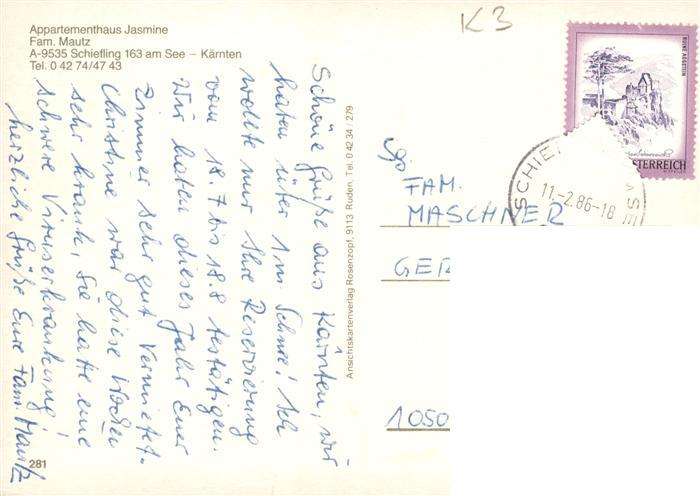 Appartementhaus Jasmine
Fam. Mautz
A-9535 Schiefling 163 am See – Kärnten
Tel. 0 42 74/47 43
Schöne Grüße aus Kärnten, wir
haben über 1m Schnee! Ich
wollte nur Ihre Reservierung
vom 18.7 bis 18.8 bestätigen.
Wir haben dieses Jahr Euer
Zimmer sehr gut Vermietet.
Christine war diese Wochen
sehr krank, Sie hatte eine
schwere Viruserkrankung!
herzliche Grüße Eure Fam. Mautz
281
Ansichtskartenverlag Rosenzopf, 9113 Ruden, Tel. 0 42 34 / 279
K3
RUINE AGGSTEIN
STERREICH
SCHIE
11.-2.86-18
SEE
FAM.
MASCHNER
GER
1050